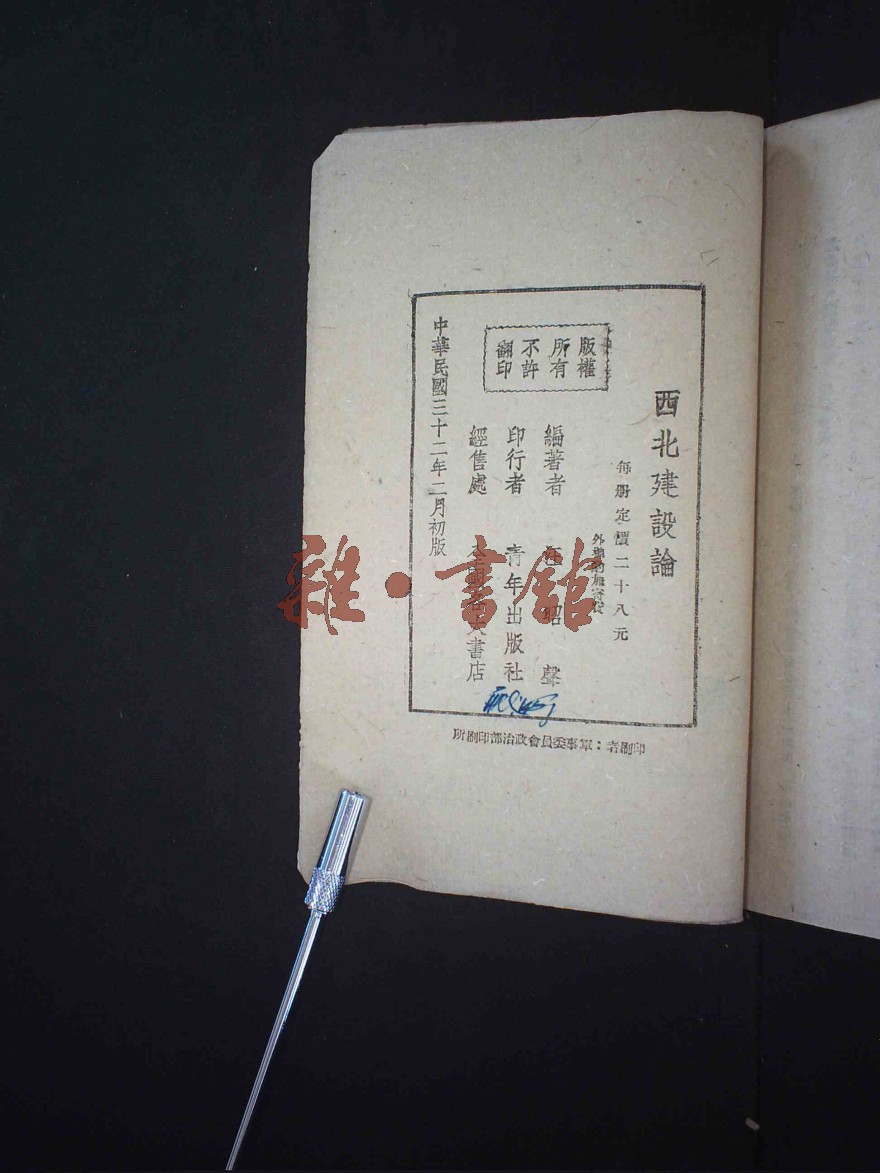 西北建設論
每册定價二十八元
外埠酌加寄費
版權
所有
不許
翻印
編著者 汪昭聲
印行者 青年出版社
經售處 全國各大書店
中華民國三十二年二月初版
印刷者：軍事委員會政治部印刷所
雜·書館